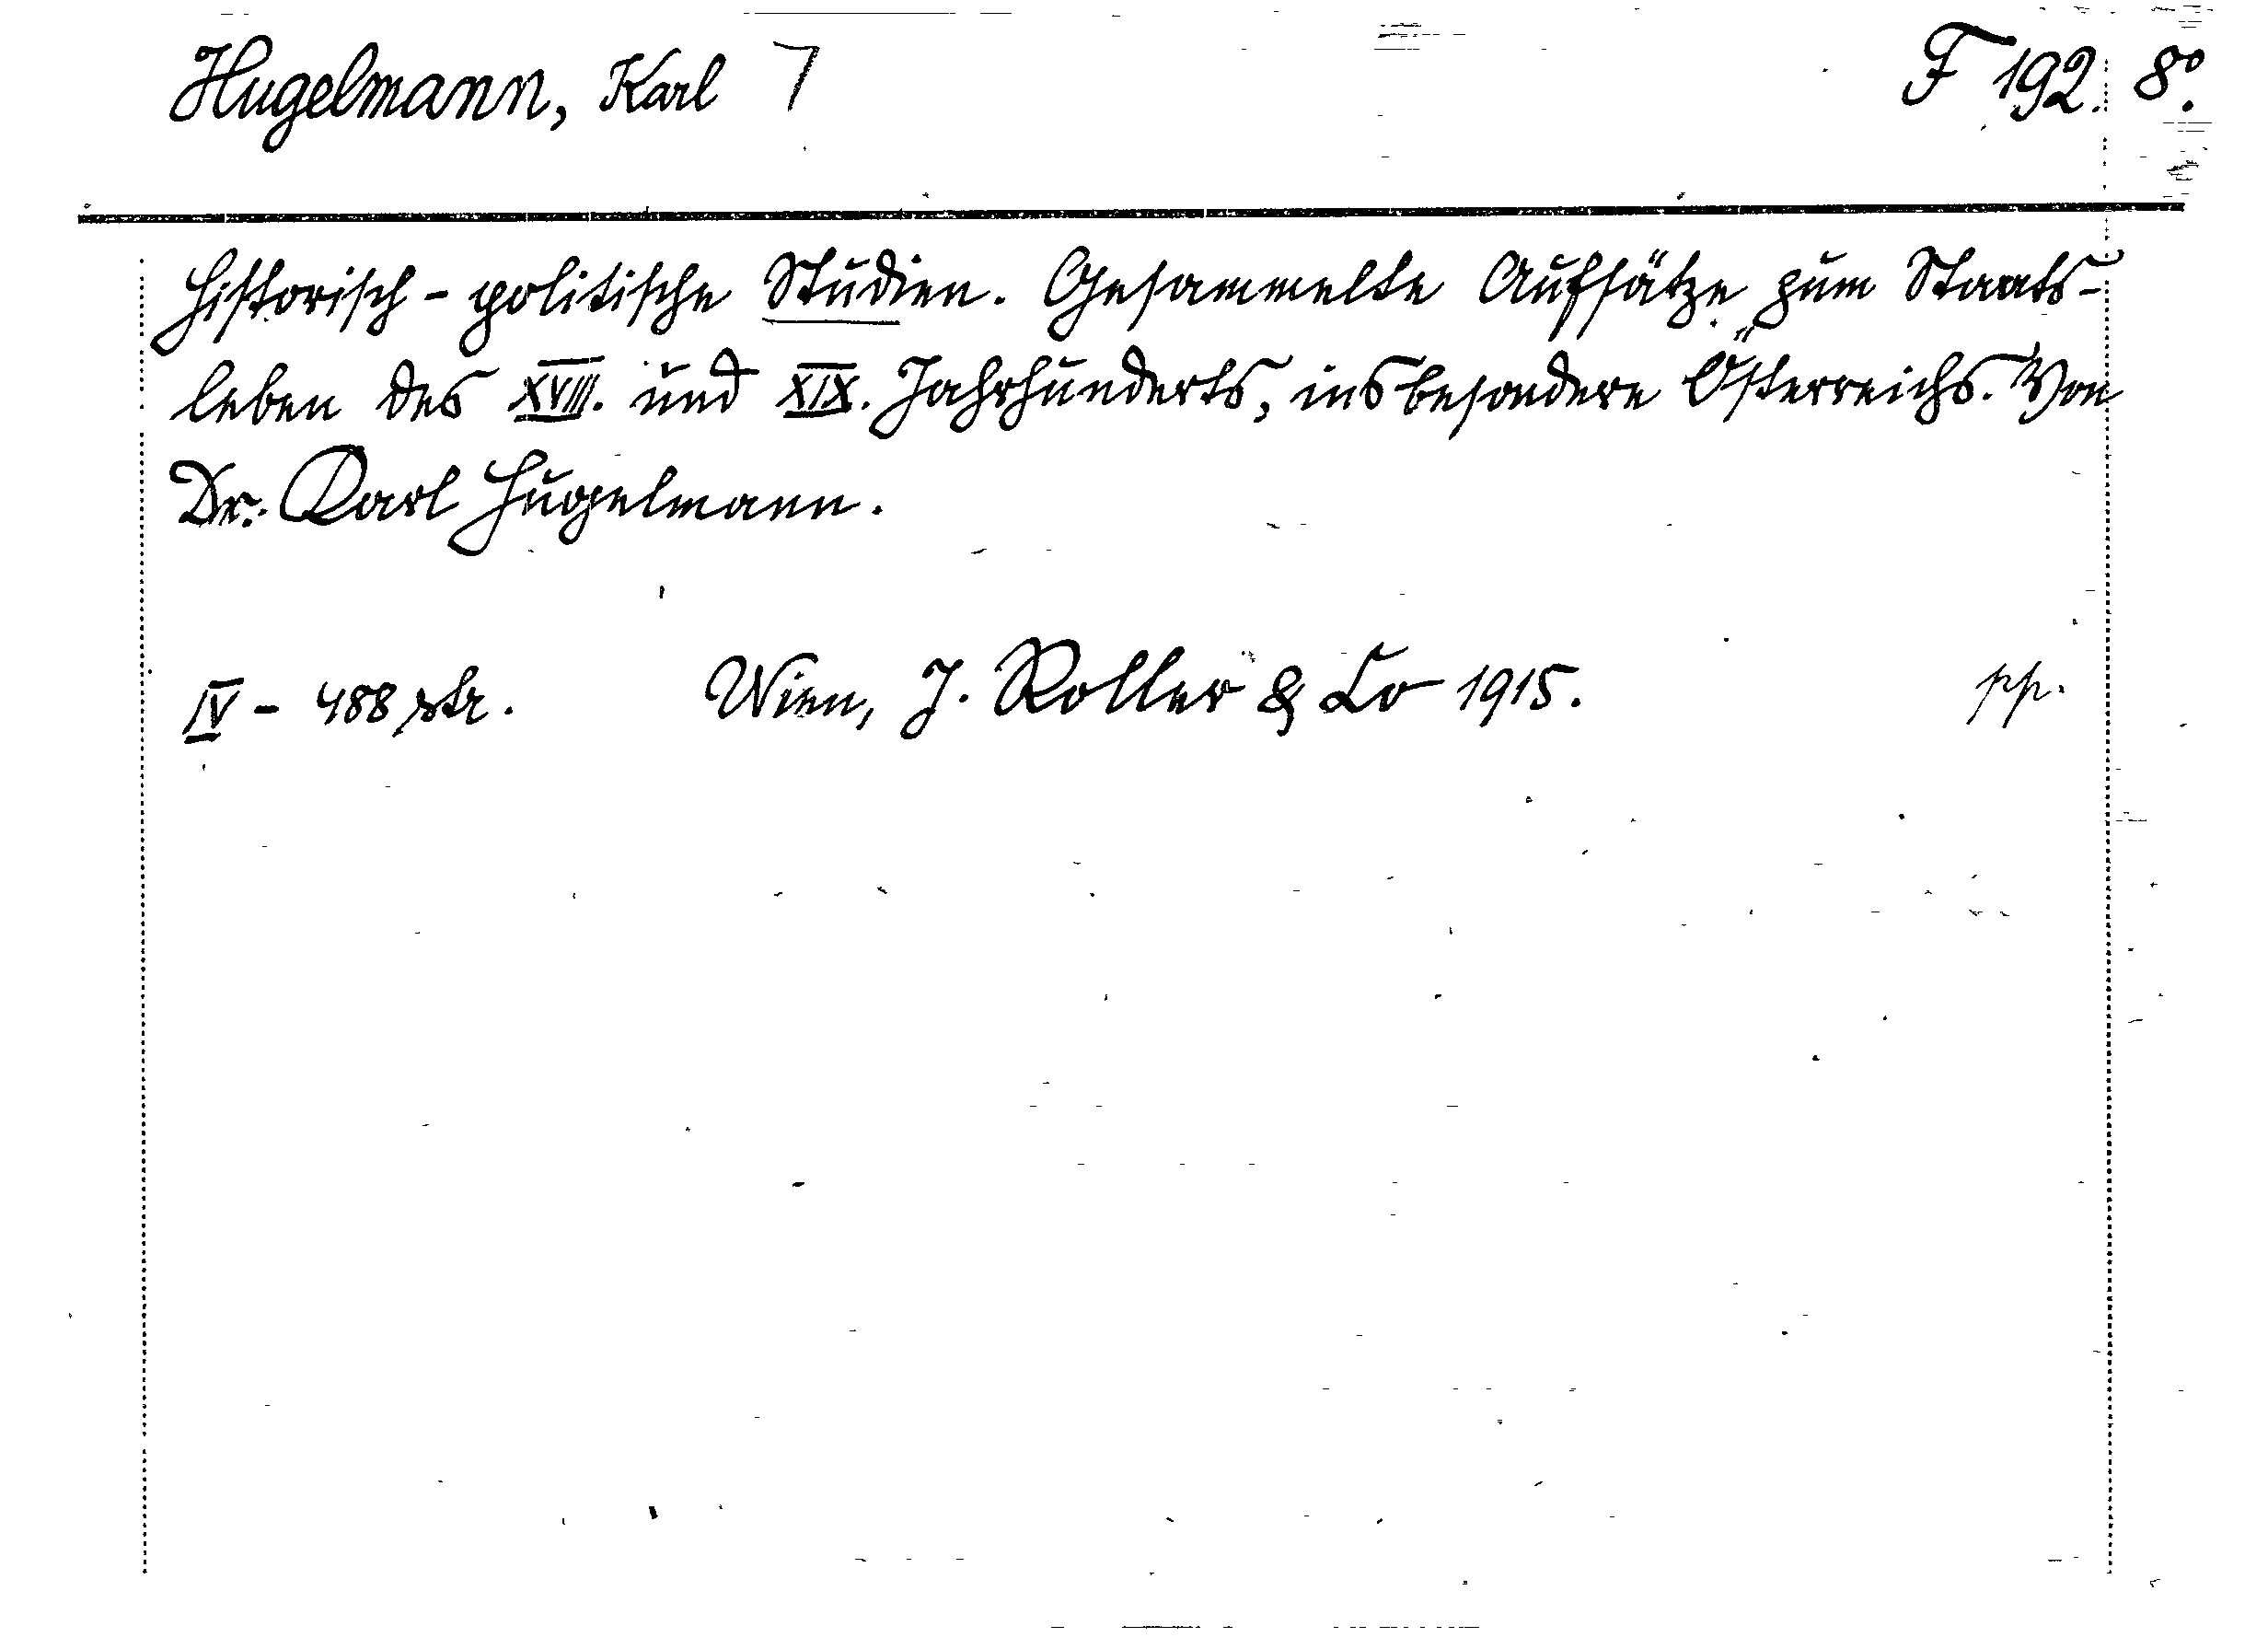 Hugelmann, Karl 7 F 192. 8°.
Historisch-politische Studien. Gesammelte Aufsätze zum Staats-
leben des XVIII. und XIX. Jahrhunderts, insbesondere Österreichs. Von
Dr. Karl Hugelmann.
IV - 488 str. Wien, J. Roller & Co 1915. pp.